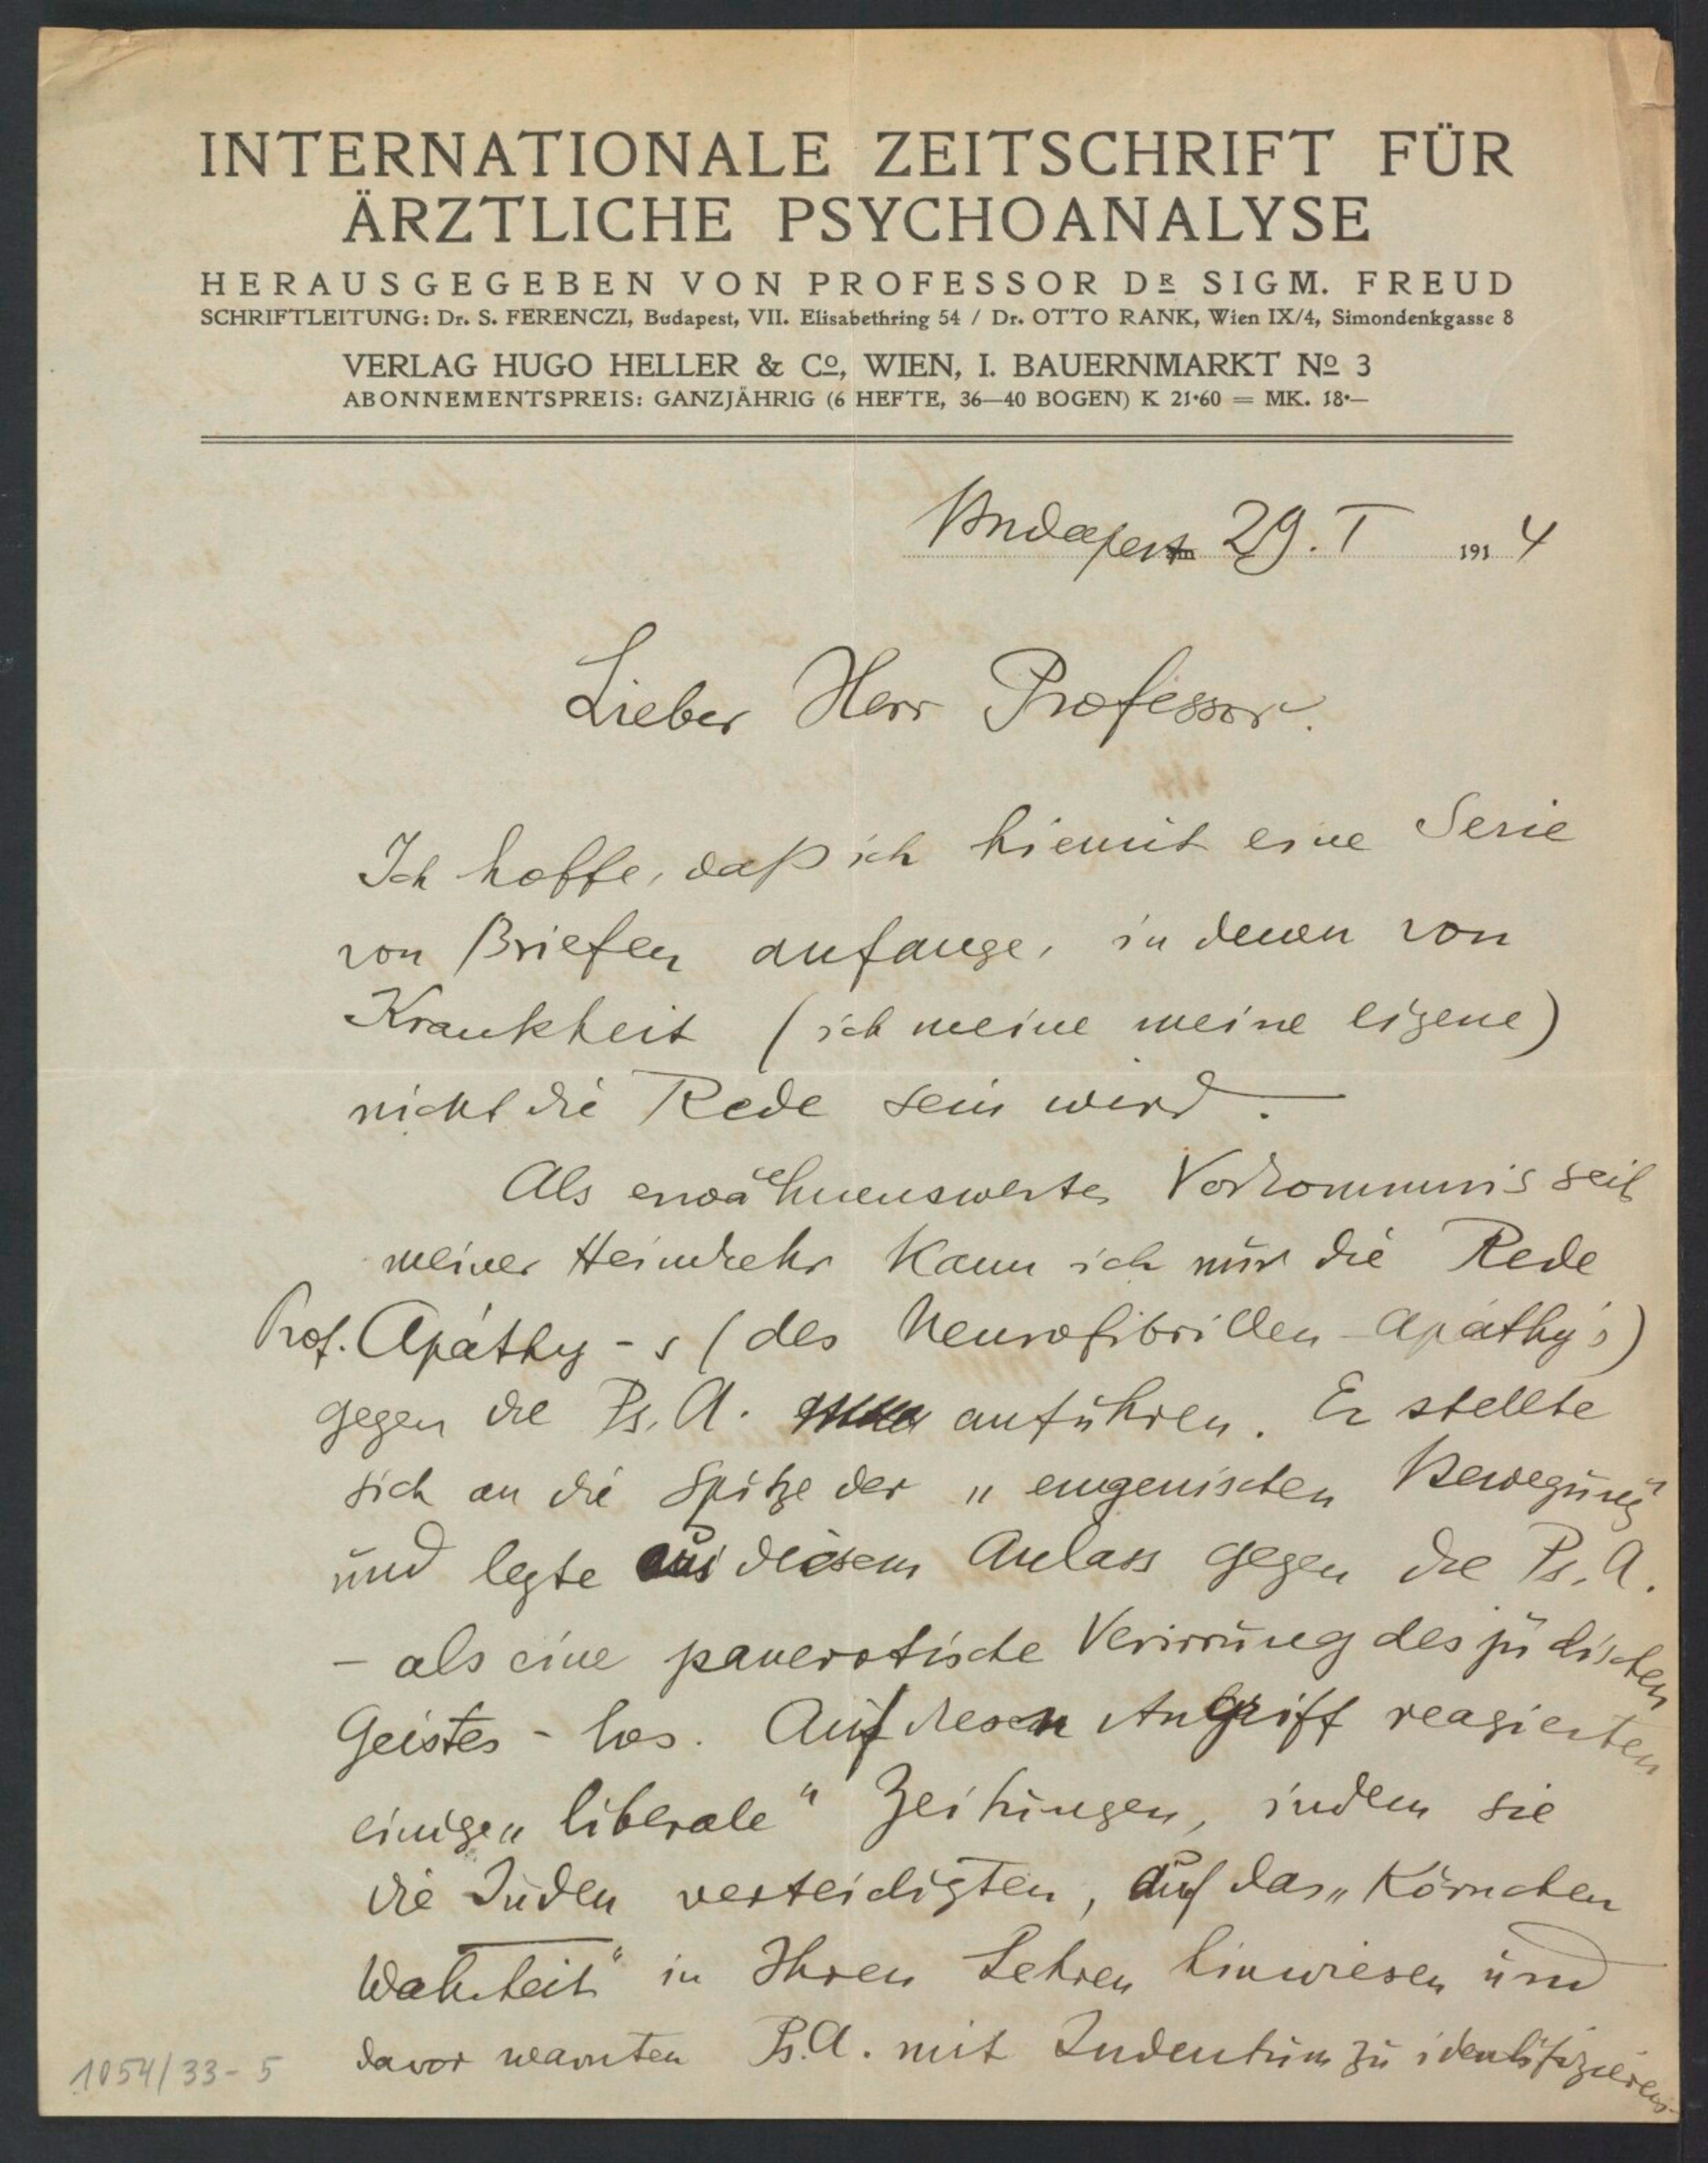 INTERNATIONALE ZEITSCHRIFT FÜR
ÄRZTLICHE PSYCHOANALYSE
HERAUSGEGEBEN VON PROFESSOR DR SIGM. FREUD
SCHRIFTLEITUNG: Dr. S. FERENCZI, Budapest, VII. Elisabethring 54 / Dr. OTTO RANK, Wien IX/4, Simondenkgasse 8
VERLAG HUGO HELLER & Co, WIEN, I. BAUERNMARKT No 3
ABONNEMENTSPREIS: GANZJÄHRIG (6 HEFTE, 36—40 BOGEN) K 21·60 = MK. 18·—
Budapest am 29. I 1914
Lieber Herr Professor.
Ich hoffe, daß ich hiemit eine Serie
von Briefen anfange, in denen von
Krankheit (ich meine meine eigene)
nicht die Rede sein wird. —
Als erwähnenswertes Vorkommnis seit
meiner Heimkehr kann ich nur die Rede
Prof. Apáthy-s (des Neurofibrillen-Apáthy's)
gegen die Ps. A. anführen. Er stellte
sich an die Spitze der „eugenischen Bewegung"
und legte aus diesem Anlass gegen die Ps. A.
– als eine panerotische Verirrung des jüdischen
Geistes – los. Auf diesen Angriff reagierten
einige „liberale" Zeitungen, indem sie
die Juden verteidigten, auf das „Körnchen
Wahrheit" in Ihren Lehren hinwiesen und
davor warnten Ps.A. mit Judentum zu identifizieren.
1054/33-5